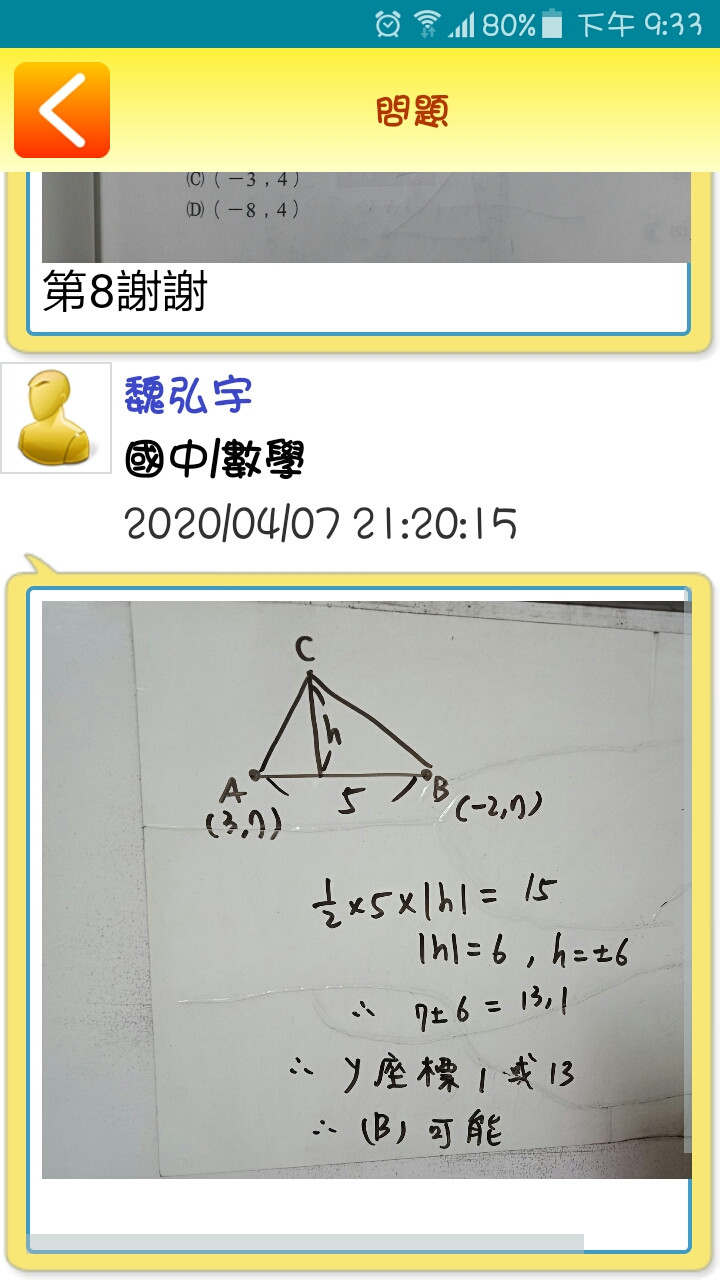 80% 下午 9:33
問題
(C) ( －3 , 4 )
(D) ( －8 , 4 )
第8謝謝
魏弘宇
國中/數學
2020/04/07 21:20:15
C
h
A
5
B
(3,7)
(-2,7)
1/2×5×|h| = 15
|h|=6 , h=±6
∴ 7±6 = 13,1
∴ y座標 1 或 13
∴ (B) 可能